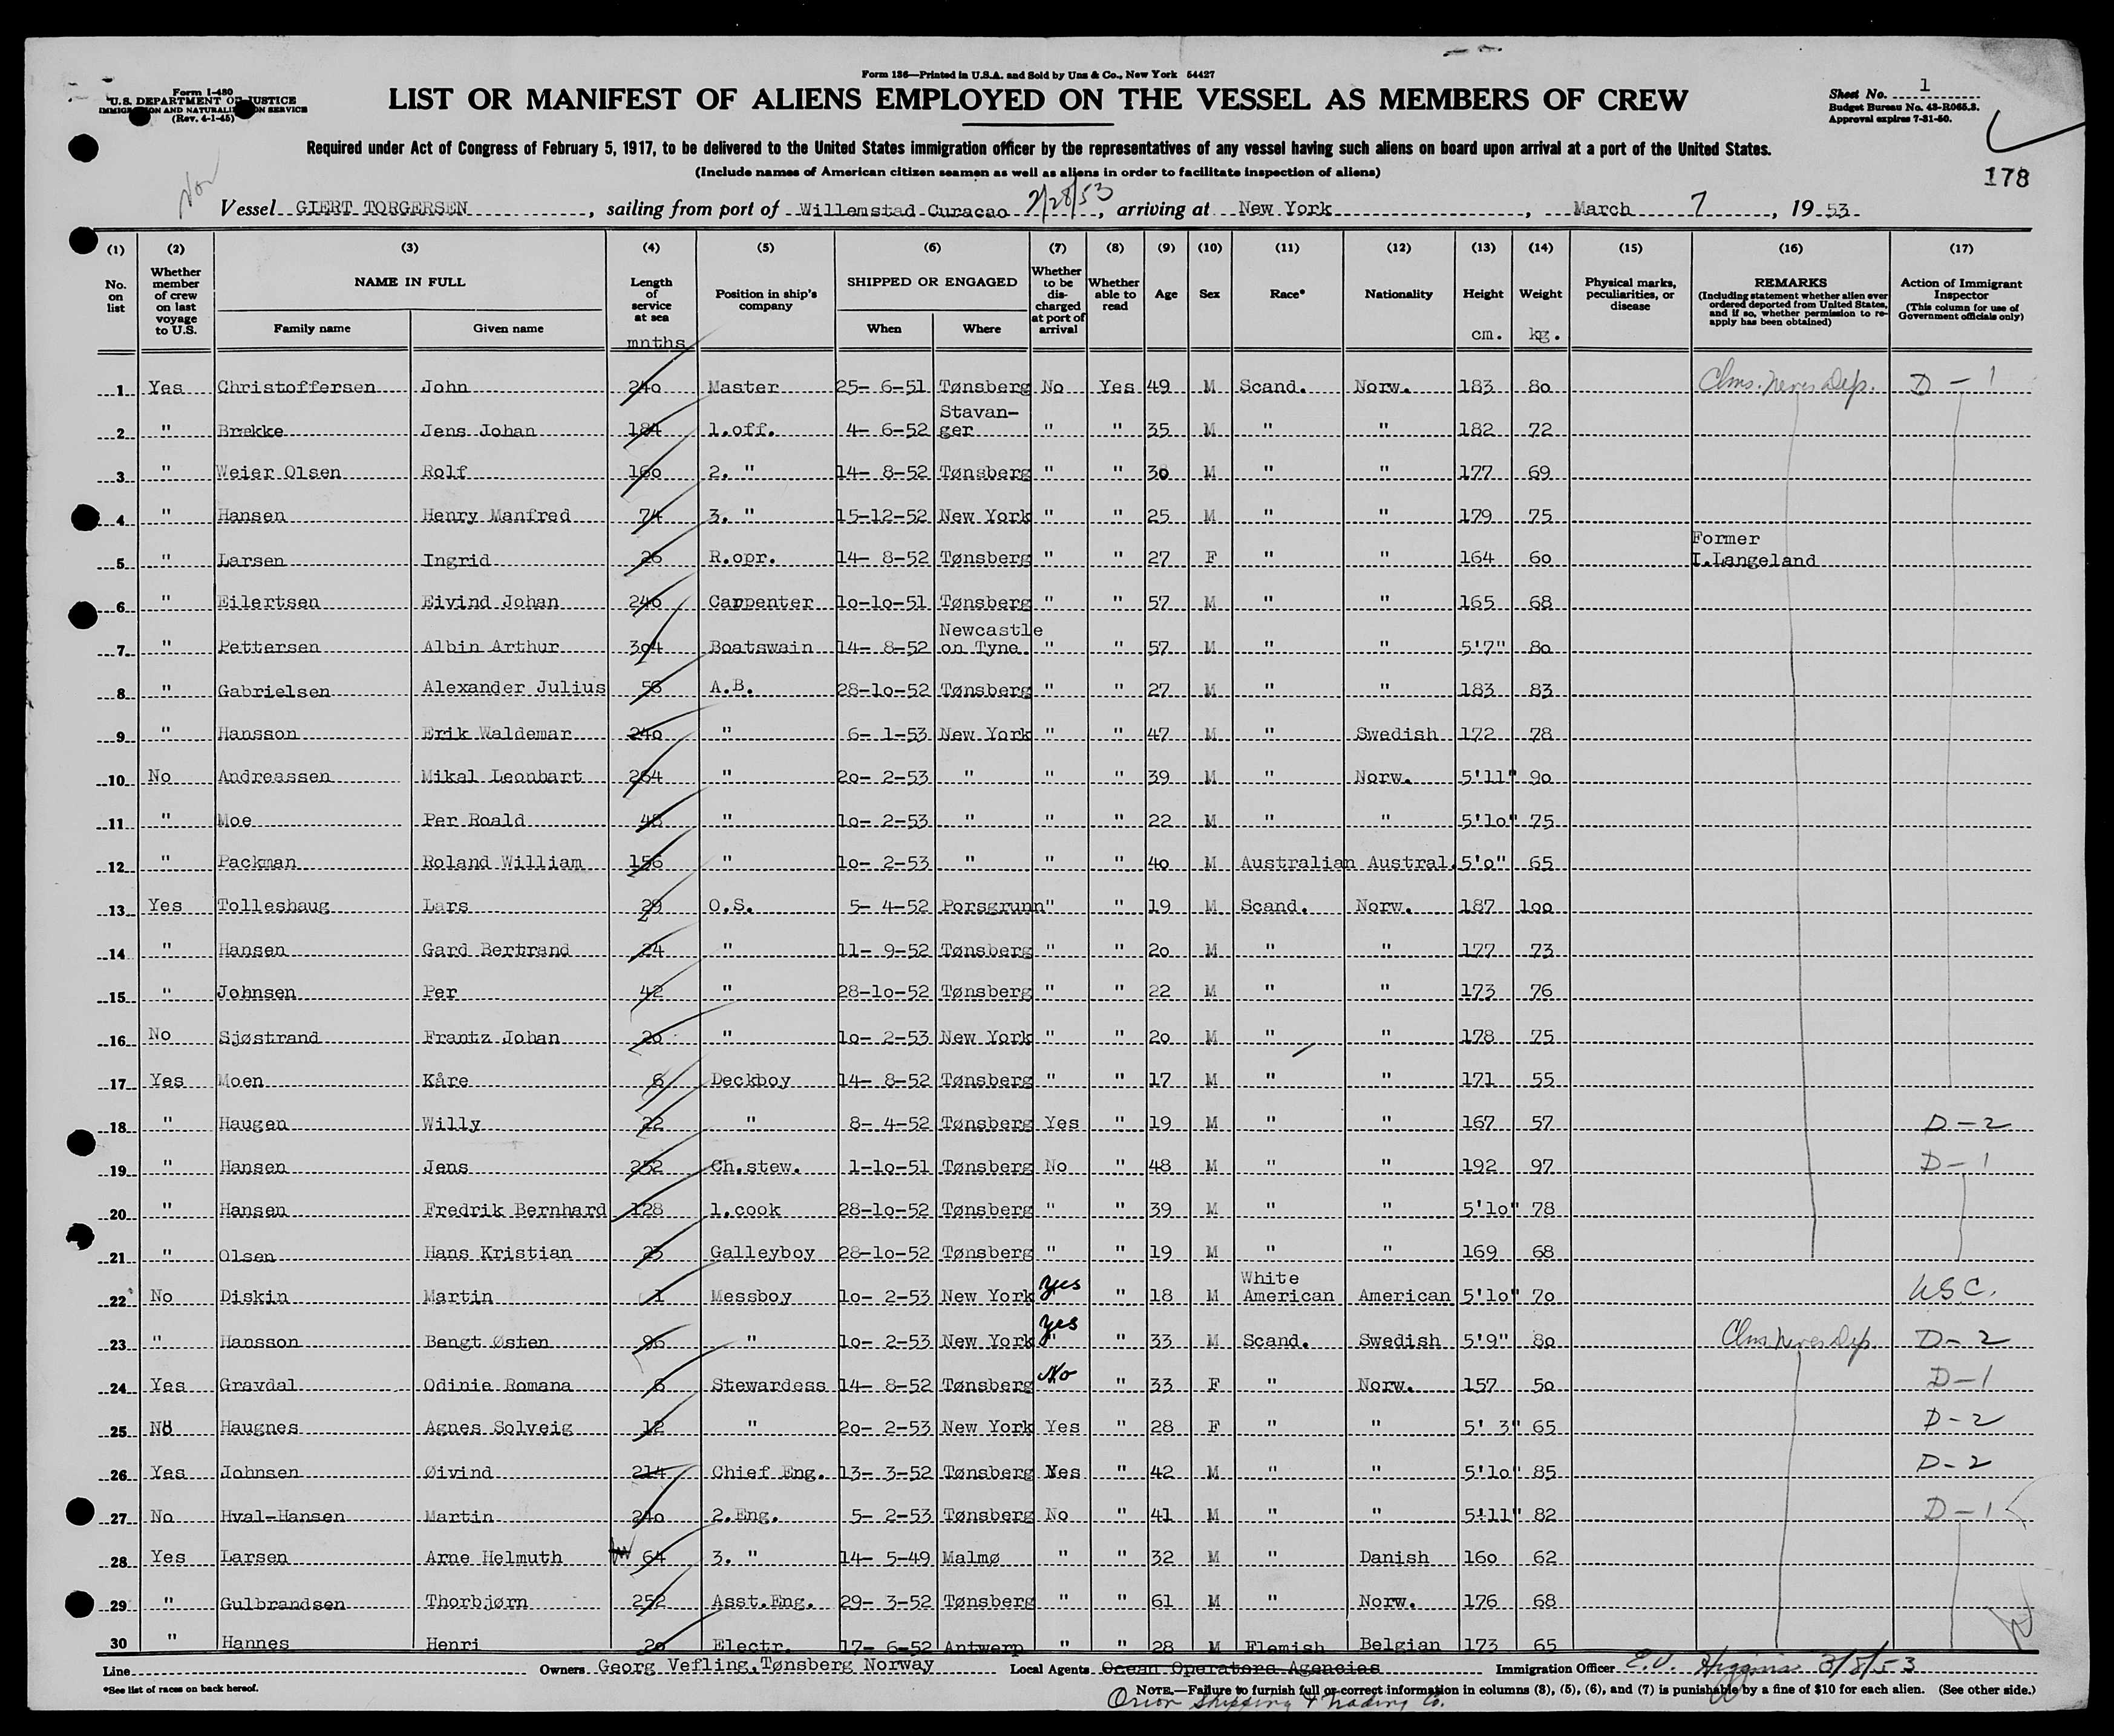 Form 136—Printed in U.S.A. and Sold by Unz & Co., New York 54427
Form I-480
U.S. DEPARTMENT OF JUSTICE
IMMIGRATION AND NATURALIZATION SERVICE
(Rev. 4-1-45)
LIST OR MANIFEST OF ALIENS EMPLOYED ON THE VESSEL AS MEMBERS OF CREW
Sheet No. 1
Budget Bureau No. 43-R065.3.
Approval expires 7-31-50.
Required under Act of Congress of February 5, 1917, to be delivered to the United States immigration officer by the representatives of any vessel having such aliens on board upon arrival at a port of the United States.
(Include names of American citizen seamen as well as aliens in order to facilitate inspection of aliens)
178
Nor
Vessel GIERT TORGERSEN, sailing from port of Willemstad Curacao 2/28/53, arriving at New York, March 7, 19 53
(1) (2) (3) (4) (5) (6) (7) (8) (9) (10) (11) (12) (13) (14) (15) (16) (17)
No. on list Whether member of crew on last voyage to U.S. NAME IN FULL Family name Given name Length of service at sea mnths Position in ship's company SHIPPED OR ENGAGED When Where Whether to be discharged at port of arrival Whether able to read Age Sex Race* Nationality Height cm. Weight kg. Physical marks, peculiarities, or disease REMARKS (Including statement whether alien ever ordered deported from United States, and if so, whether permission to re-apply has been obtained) Action of Immigrant Inspector (This column for use of Government officials only)
1 Yes Christoffersen John 240 Master 25- 6-51 Tønsberg No Yes 49 M Scand. Norw. 183 80 Clms. never Dep. D - 1
2 " Brække Jens Johan 184 1.off. 4- 6-52 Stavan-ger " " 35 M " " 182 72
3 " Weier Olsen Rolf 160 2. " 14- 8-52 Tønsberg " " 30 M " " 177 69
4 " Hansen Henry Manfred 74 3. " 15-12-52 New York " " 25 M " " 179 75
5 " Larsen Ingrid 26 R.opr. 14- 8-52 Tønsberg " " 27 F " " 164 60 Former I.Langeland
6 " Eilertsen Eivind Johan 240 Carpenter 10-10-51 Tønsberg " " 57 M " " 165 68
7 " Pettersen Albin Arthur 304 Boatswain 14- 8-52 Newcastle on Tyne " " 57 M " " 5'7" 80
8 " Gabrielsen Alexander Julius 56 A.B. 28-10-52 Tønsberg " " 27 M " " 183 83
9 " Hansson Erik Waldemar 240 " 6- 1-53 New York " " 47 M " Swedish 172 78
10 No Andreassen Mikal Leonhart 264 " 20- 2-53 " " " 39 M " Norw. 5'11" 90
11 " Moe Per Roald 48 " 10- 2-53 " " " 22 M " " 5'10" 75
12 " Packman Roland William 156 " 10- 2-53 " " " 40 M Australian Austral. 5'0" 65
13 Yes Tolleshaug Lars 29 O.S. 5- 4-52 Porsgrunn " " 19 M Scand. Norw. 187 100
14 " Hansen Gard Bertrand 24 " 11- 9-52 Tønsberg " " 20 M " " 177 73
15 " Johnsen Per 42 " 28-10-52 Tønsberg " " 22 M " " 173 76
16 No Sjøstrand Frantz Johan 20 " 10- 2-53 New York " " 20 M " " 178 75
17 Yes Moen Kåre 6 Deckboy 14- 8-52 Tønsberg " " 17 M " " 171 55
18 " Haugen Willy 22 " 8- 4-52 Tønsberg Yes " 19 M " " 167 57 D - 2
19 " Hansen Jens 252 Ch.stew. 1-10-51 Tønsberg No " 48 M " " 192 97 D - 1
20 " Hansen Fredrik Bernhard 128 1.cook 28-10-52 Tønsberg " " 39 M " " 5'10" 78
21 " Olsen Hans Kristian 23 Galleyboy 28-10-52 Tønsberg " " 19 M " " 169 68
22 No Diskin Martin 1 Messboy 10- 2-53 New York yes " 18 M White American American 5'10" 70 USC.
23 " Hansson Bengt Østen 96 " 10- 2-53 New York yes " " 33 M Scand. Swedish 5'9" 80 Clms never Dep. D - 2
24 Yes Gravdal Odinie Romana 6 Stewardess 14- 8-52 Tønsberg No " 33 F " Norw. 157 50 D - 1
25 No Haugnes Agnes Solveig 12 " 20- 2-53 New York Yes " 28 F " " 5' 3" 65 D - 2
26 Yes Johnsen Øivind 214 Chief Eng. 13- 3-52 Tønsberg Yes " 42 M " " 5'10" 85 D - 2
27 No Hval-Hansen Martin 240 2.Eng. 5- 2-53 Tønsberg No " 41 M " " 5'11" 82 D - 1
28 Yes Larsen Arne Helmuth 64 3. " 14- 5-49 Malmø " " 32 M " Danish 160 62
29 " Gulbrandsen Thorbjørn 252 Asst.Eng. 29- 3-52 Tønsberg " " 61 M " Norw. 176 68
30 " Hannes Henri 20 Electr. 17- 6-52 Antwerp " " 28 M Flemish Belgian 173 65
Line Owners Georg Vefling, Tønsberg Norway Local Agents Ocean Operators Agencies Immigration Officer E.V. Higgins 3/8/53
*See list of races on back hereof.
NOTE.—Failure to furnish full or correct information in columns (3), (5), (6), and (7) is punishable by a fine of $10 for each alien. (See other side.)
Orion Shipping & Trading Co.